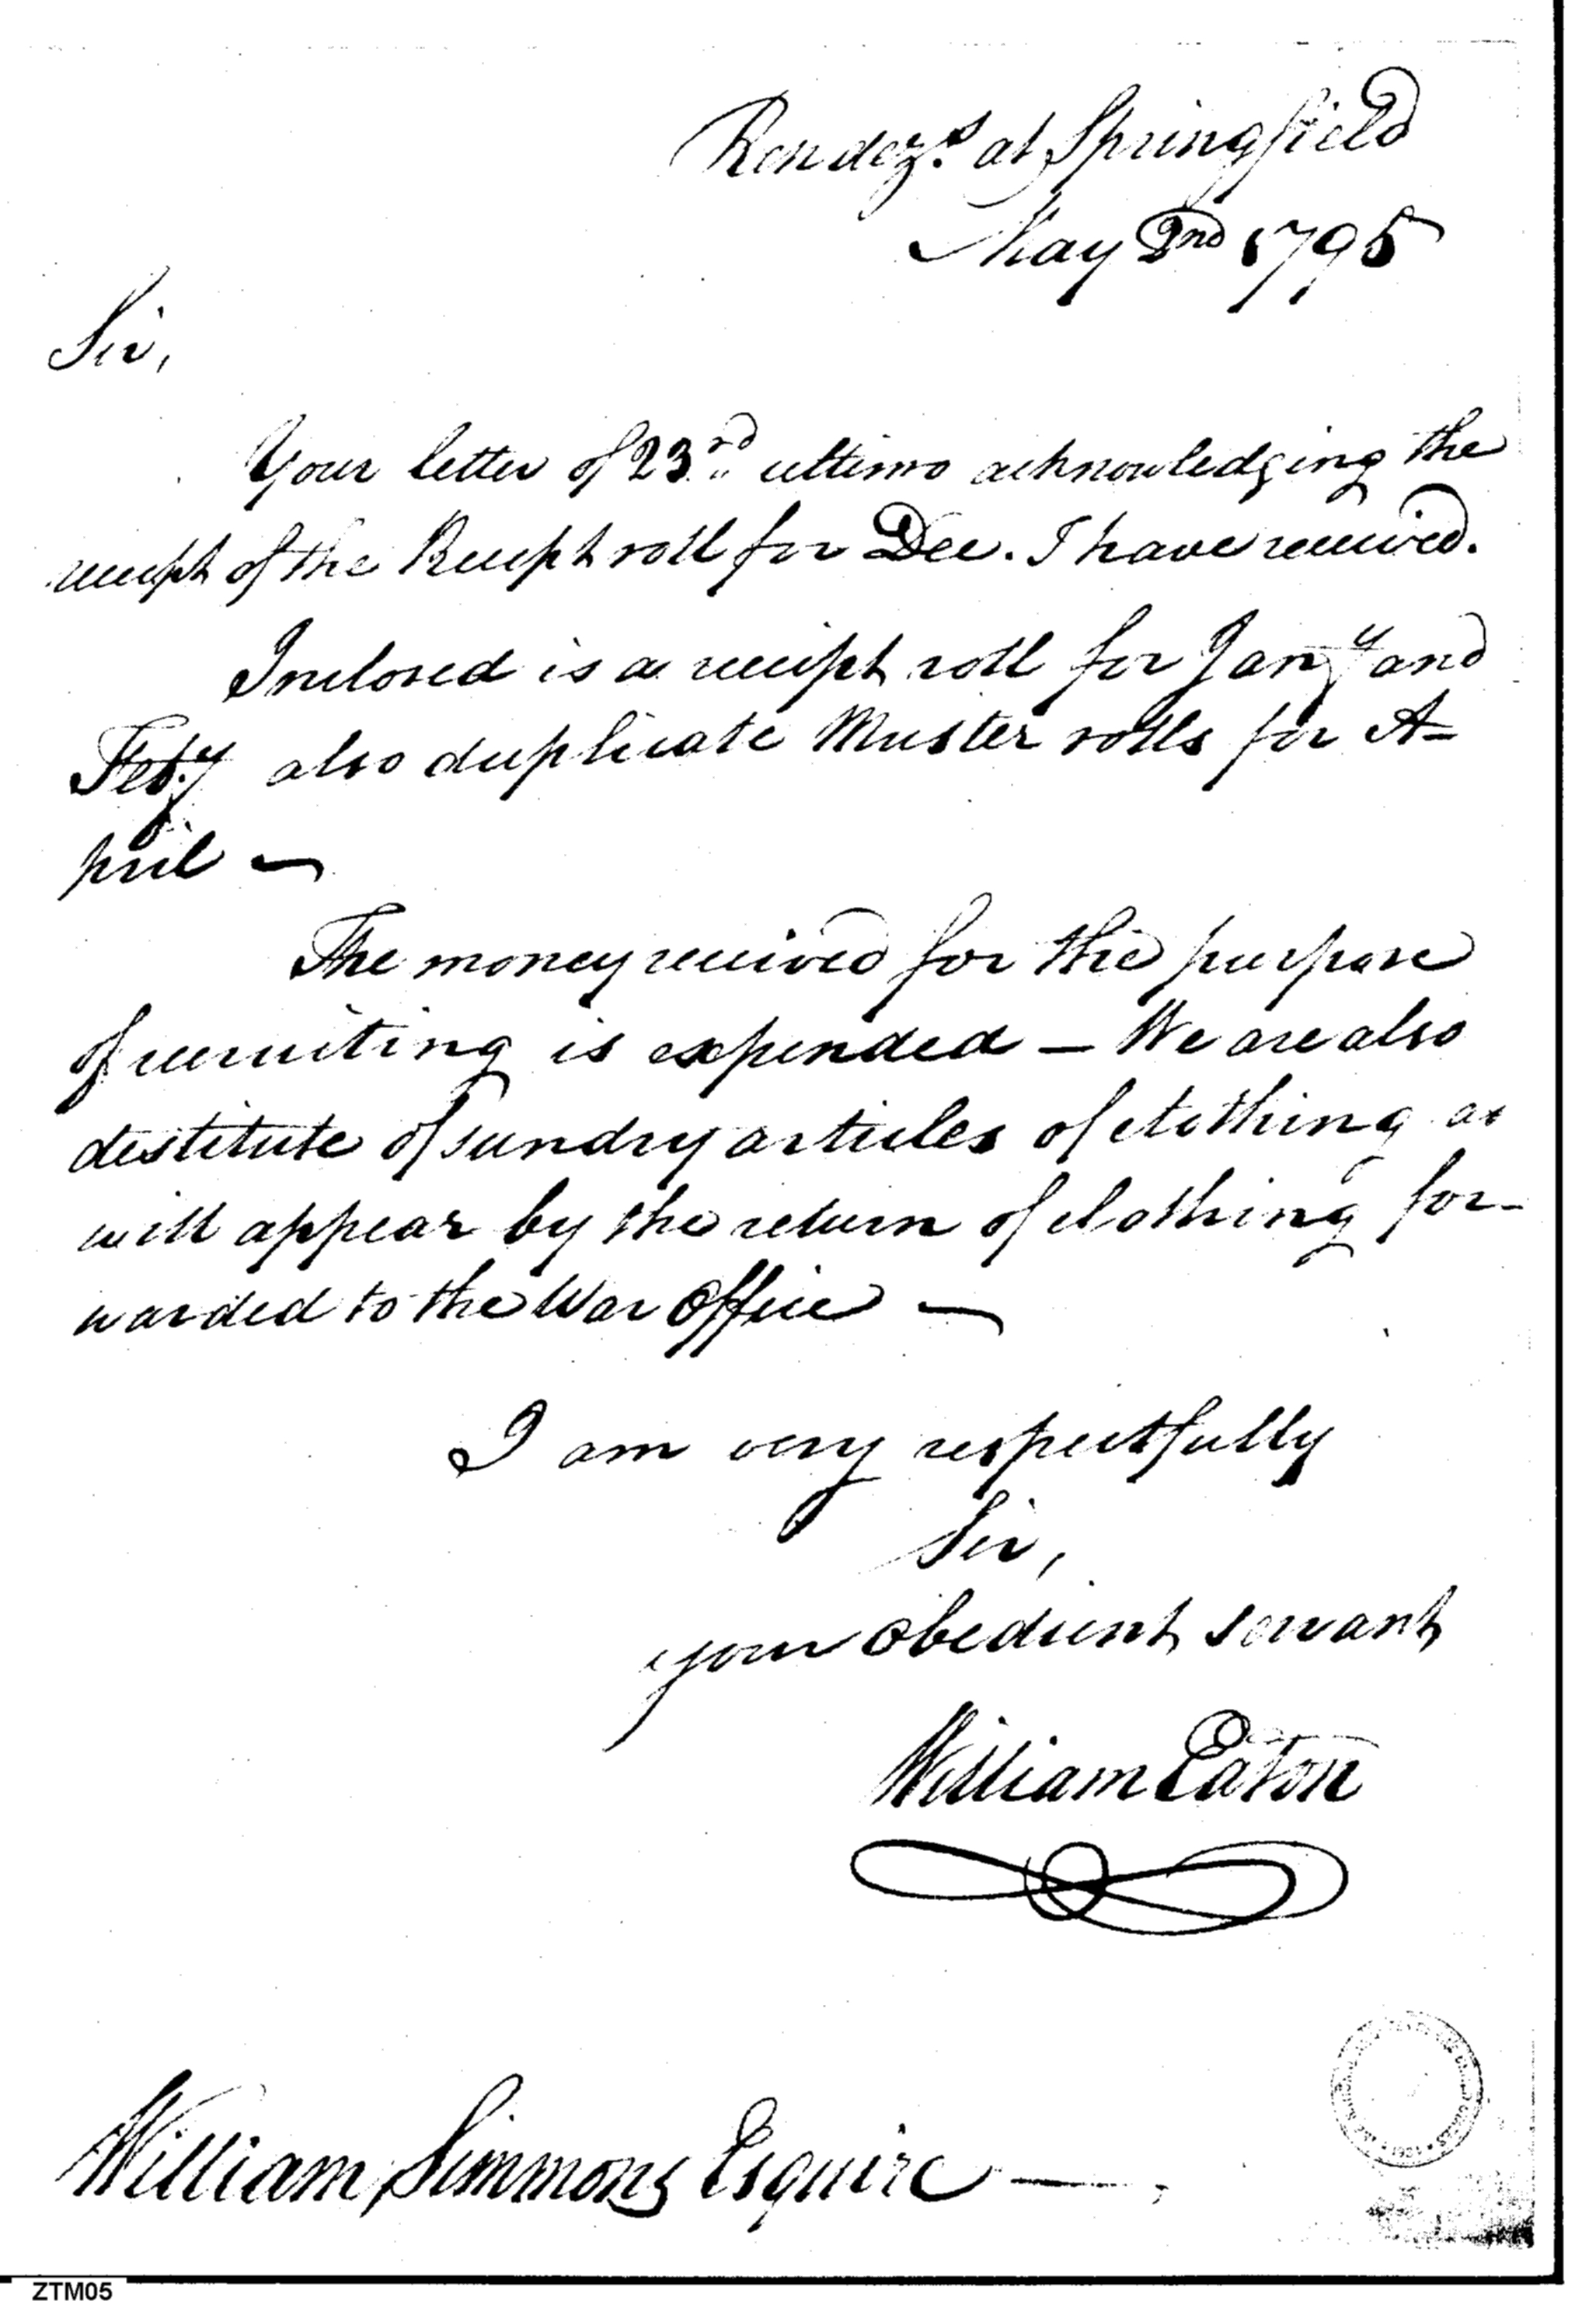 Rendezs. at Springfield
May 2nd 1795
Sir,
Your letter of 23rd ultimo acknowledging the
receipt of the Receipt roll for Dec. I have received.
Inclosed is a receipt roll for Jany and
Feby also duplicate Muster rolls for A-
pril —
The money received for the purpose
of recruiting is expended — We are also
destitute of sundry articles of clothing as
will appear by the return of clothing for-
warded to the War Office —
I am very respectfully
Sir,
your obedient servant
William Eaton
William Simmons Esquire —
ZTM05